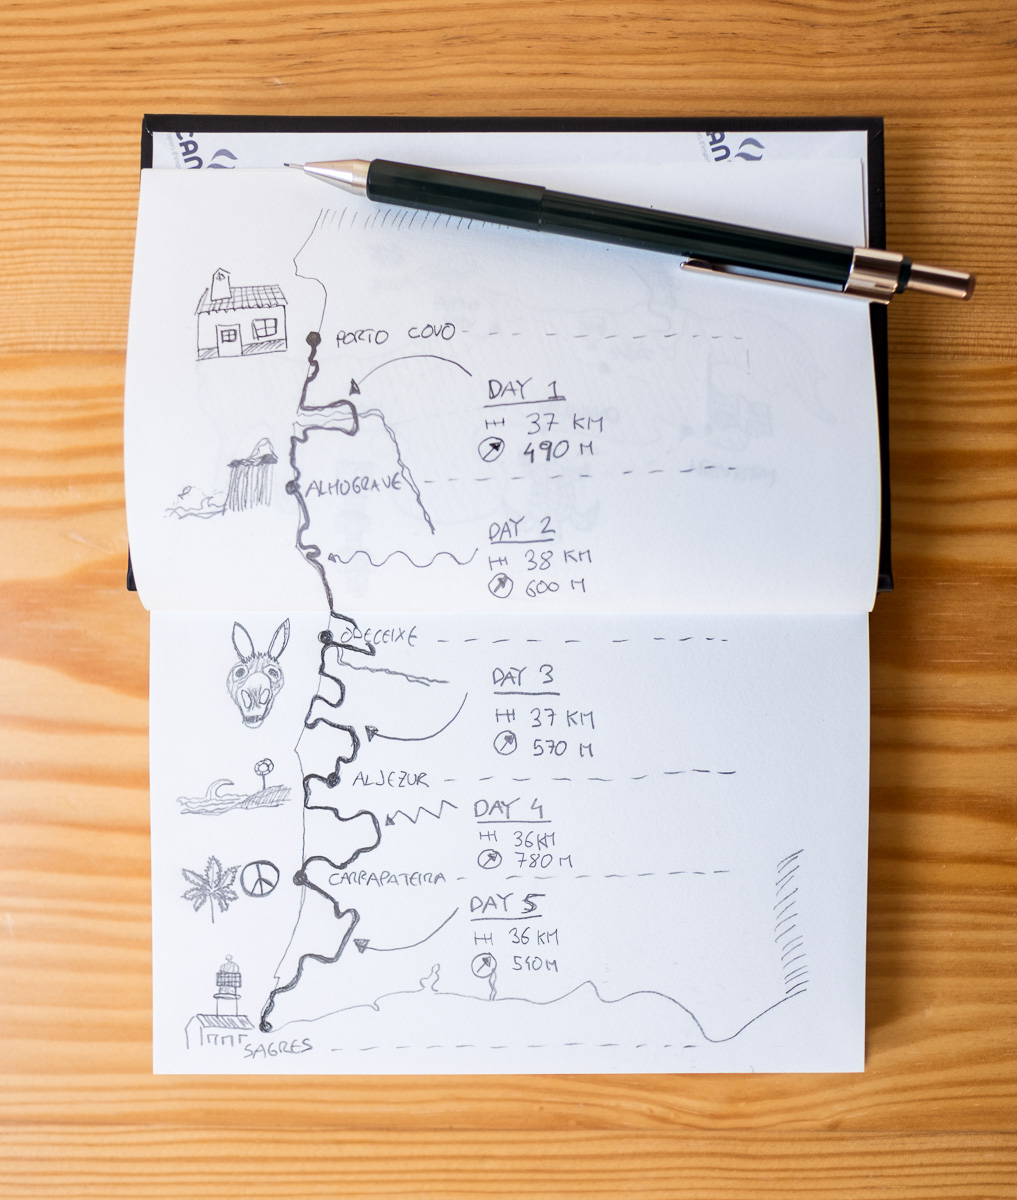 CAN
CAN
PORTO COVO
DAY 1
37 KM
490 M
ALMOGRAVE
DAY 2
38 KM
600 M
ODECEIXE
DAY 3
37 KM
570 M
ALJEZUR
DAY 4
36KM
780 M
CARRAPATEIRA
DAY 5
36 KM
540M
SAGRES